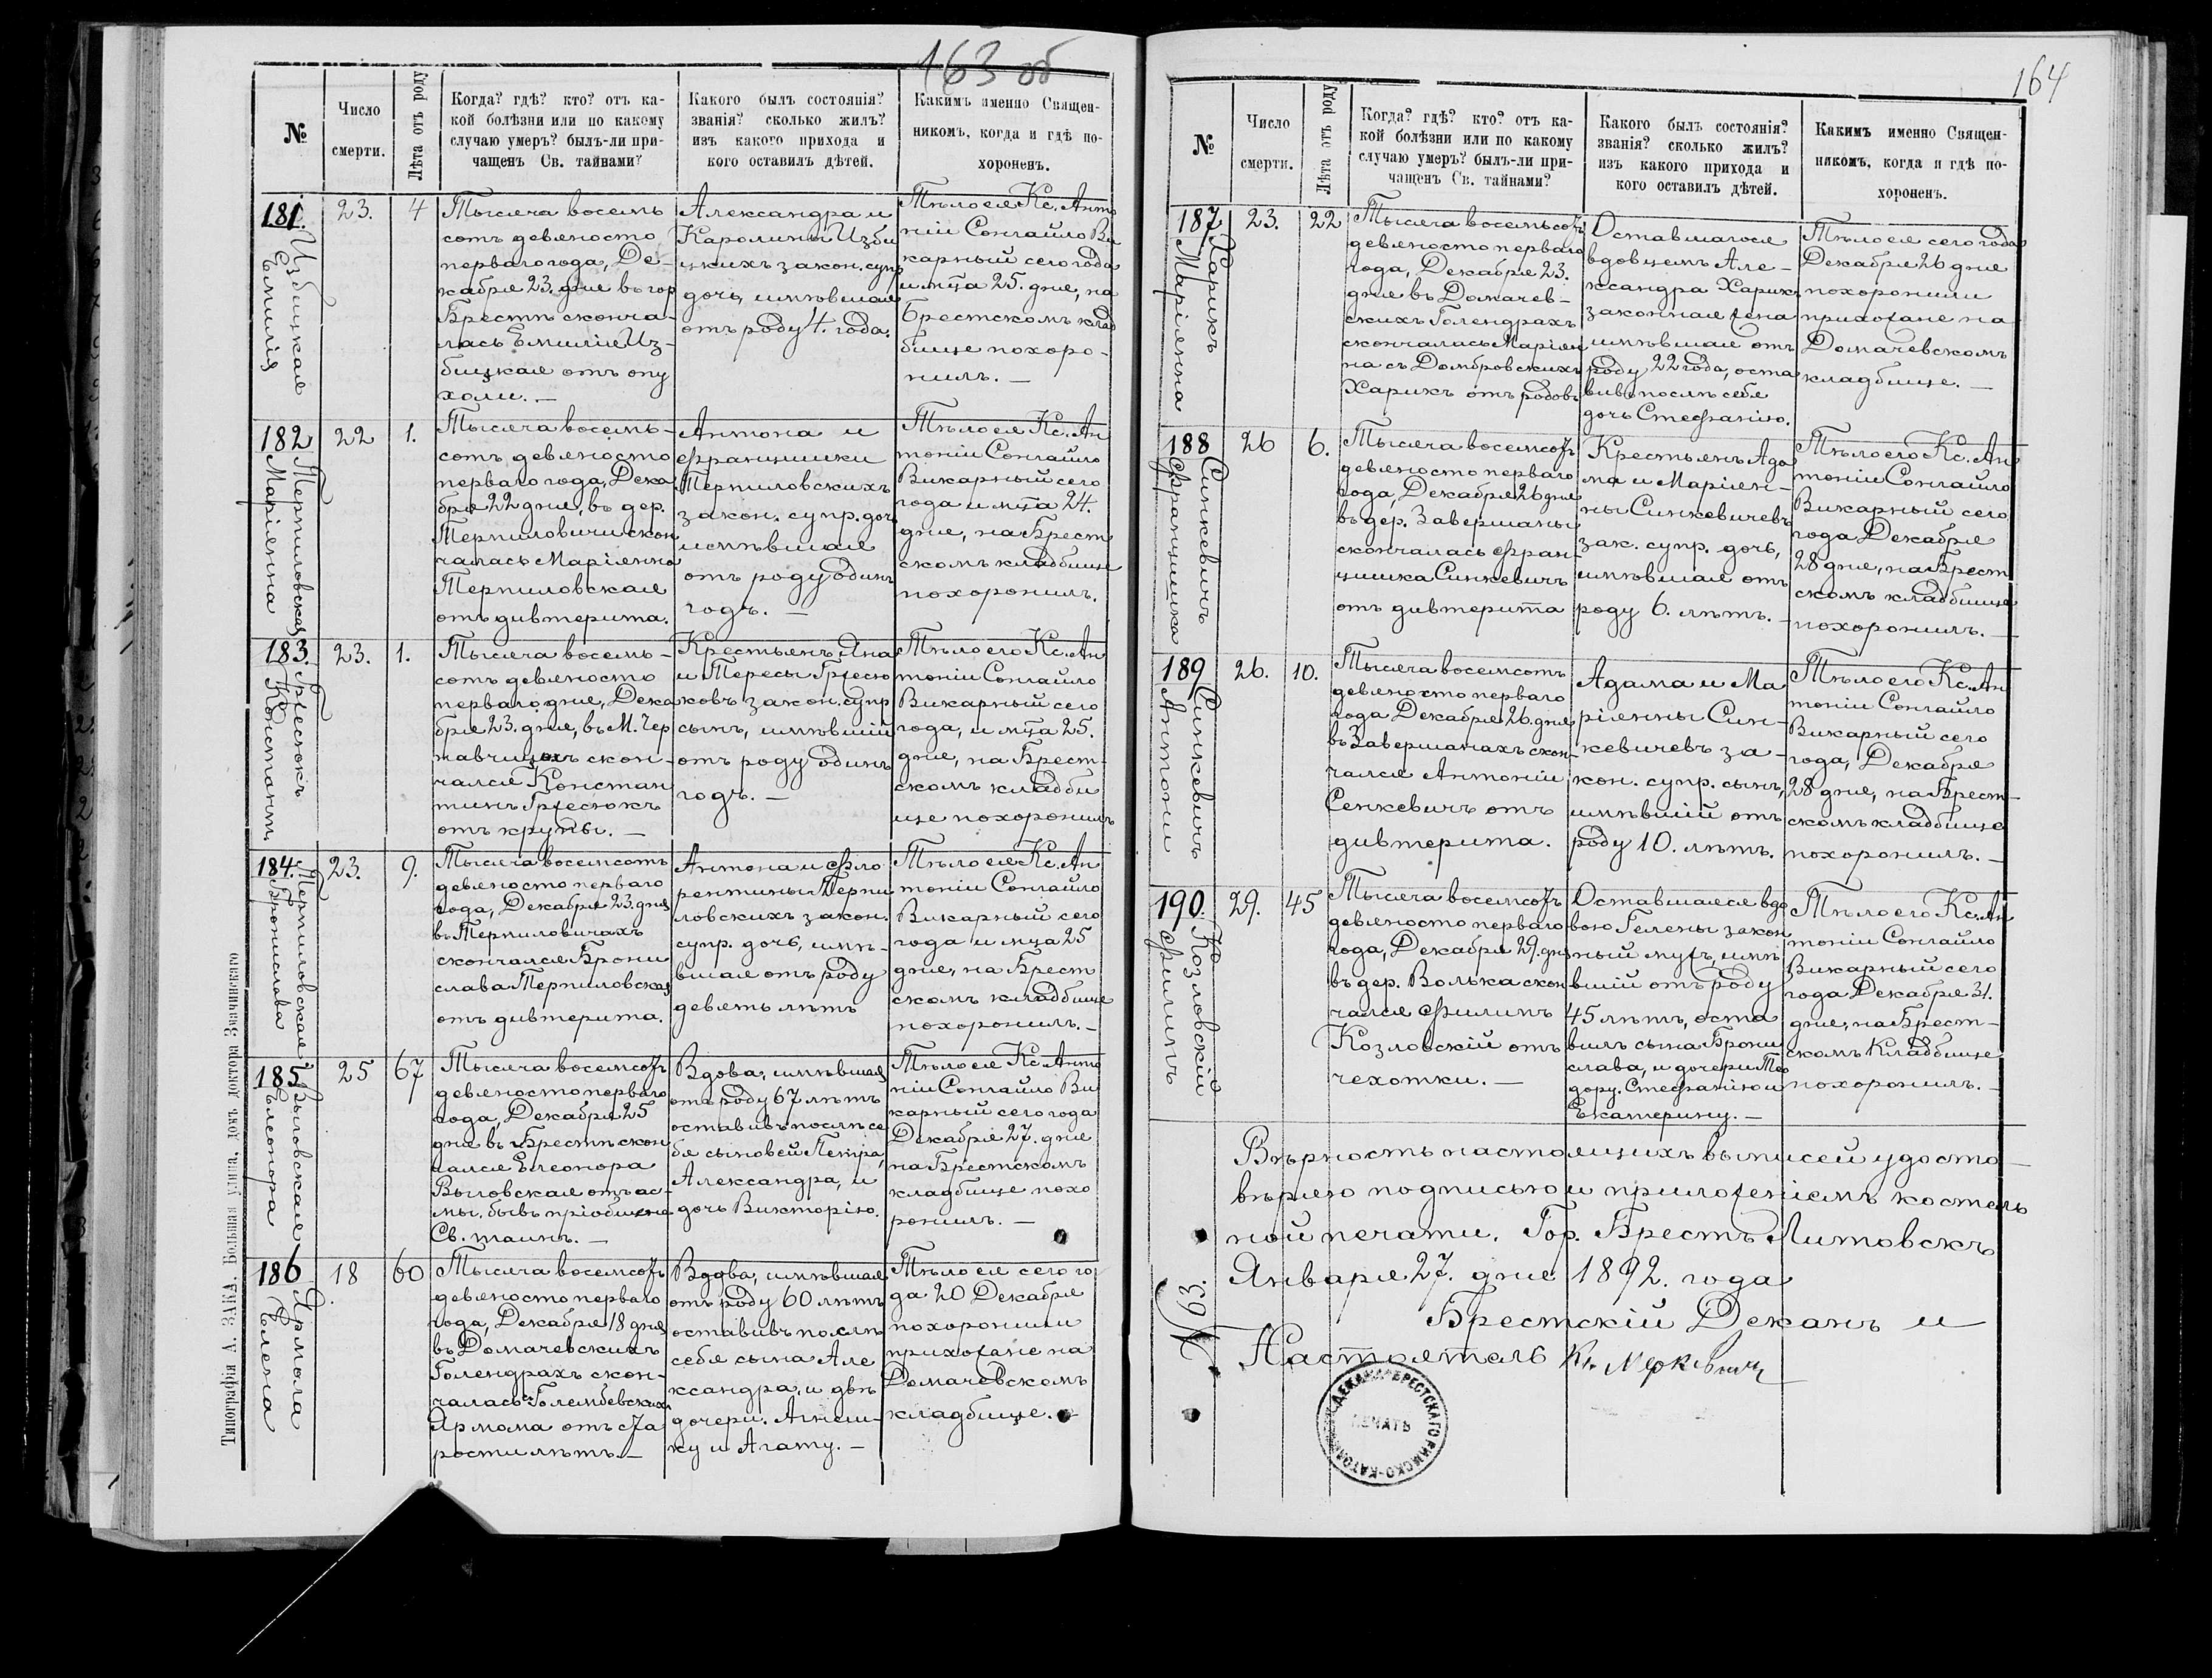 163 об
№
Число
смерти.
Лѣта отъ роду
Когда? гдѣ? кто? отъ ка-
кой болѣзни или по какому
случаю умеръ? былъ-ли при-
чащенъ Св. тайнами?
Какого былъ состоянія?
званія? сколько жилъ?
изъ какого прихода и
кого оставилъ дѣтей.
Какимъ именно Священ-
никомъ, когда и гдѣ по-
хороненъ.
181.
Избицкая
Емилія
23.
4
Тысяча восемь
сотъ девяносто
перваго года, Де-
кабря 23. дня въ гор
Брестѣ сконча-
лась Емилія Из-
бицкая отъ опу
холи. —
Александра и
Каролины Изби
цкихъ закон. супр
дочь, имѣвшая
отъ роду 4. года.
Тѣло ея Кс. Анто
ній Сонгайло Ви
карный сего года
и мца 25. дня, на
Брестскомъ клад
бище похоро-
нилъ. —
182
Терпиловская
Маріянна
22
1.
Тысяча восемь-
сотъ девяносто
перваго года, Дека
бря 22 дня, въ дер.
Терпиловичи скон
чалась Маріянна
Терпиловская
отъ дивтерита.
Антона и
Францишки
Терпиловскихъ
закон. супр. дочь
имѣвшая
отъ роду одинъ
годъ. —
Тѣло ея Кс. Ан
тоній Сонгайло
Викарный сего
года и мца 24.
дня, на Брест
скомъ кладбище
похоронилъ.
183.
Гресюкъ
Константинъ
23.
1.
Тысяча восемь-
сотъ девяносто
перваго дня, Дека
бря 23. дня, въ М. Чер
навчицахъ скон-
чался Констан
тинъ Гресюкъ
отъ крупы. —
Крестьянъ Яна
и Тересы Гресю
ковъ закон. супр
сынъ, имѣвшій
отъ роду одинъ
годъ. —
Тѣло его Кс. Ан
тоній Сонгайло
Викарный сего
года, и мца 25.
дня, на Брест-
скомъ кладби
ще похоронилъ
184.
Терпиловская
Бронислава
23.
9.
Тысяча восемсотъ
девяносто перваго
года, Декабря 23. дня
въ Терпиловичахъ
скончался Брони
слава Терпиловская
отъ дивтерита.
Антона и Фло
рентины Терпи
ловскихъ закон.
супр. дочь, имѣ-
вшая отъ роду
девять лѣтъ
Тѣло ея Кс. Ан
тоній Сонгайло
Викарный сего
года и мца 25
дня, на Брест
скомъ кладбище
похоронилъ. —
185
Выговская
Елеонора
25
67
Тысяча восемсотъ
девяносто перваго
года, Декабря 25
дня въ Брестѣ скон
чался Елеонора
Выговская отъ ас-
мы, бывъ пріобщена
Св. таинъ. —
Вдова, имѣвшая
отъ роду 67 лѣтъ
оставивъ послѣ се
бя сыновей Петра,
Александра, и
дочь Викторію.
Тѣло ея Кс. Анто
ній Сонгайло Ви
карный сего года
Декабря 27. дня
на Брестскомъ
кладбище похо
ронилъ. —
186
Ярмола
Елена
18
60
Тысяча восемсотъ
девяносто перваго
года, Декабря 18 дня
въ Домачевскихъ
Голендрахъ скон-
чалась съ Голембевскихъ
Ярмома отъ ста
рости лѣтъ. —
Вдова, имѣвшая
отъ роду 60 лѣтъ
оставивъ послѣ
себя сына Але
ксандра, и двѣ
дочери. Агнеш-
ку и Агату. —
Тѣло ея сего го
да 20 Декабря
похоронили
прихожане на
Домачевскомъ
кладбище. —
Типографія А. ЗАКА, Большая улица, домъ доктора Значинскаго
164
№
Число
смерти.
Лѣта отъ роду
Когда? гдѣ? кто? отъ ка-
кой болѣзни или по какому
случаю умеръ? былъ-ли при-
чащенъ Св. тайнами?
Какого былъ состоянія?
званія? сколько жилъ?
изъ какого прихода и
кого оставилъ дѣтей.
Какимъ именно Священ-
никомъ, когда и гдѣ по-
хороненъ.
187
Харикъ
Маріянна
23.
22
Тысяча восемьсотъ
девяносто перваго
года, Декабря 23.
дня въ Домачев-
скихъ Голендрахъ
скончалась Маріян
на съ Домбровскихъ
Харикъ отъ родовъ
Оставшагося
вдовцемъ Але-
ксандра Харикъ
законная жена
имѣвшая отъ
роду 22 года, оста
вивъ послѣ себя
дочь Стефанію.
Тѣло ея сего года
Декабря 26 дня
похоронили
прихожане на
Домачевскомъ
кладбище. —
188
Синкевичъ
Францишка
26
6.
Тысяча восемсотъ
девяносто перваго
года, Декабря 26 дня
въ дер. Завершаны
скончалась Фран-
цишка Синкевичъ
отъ дивтерита
Крестьянъ Ада
ма и Маріян-
ны Синкевичевъ
зак. супр. дочь,
имѣвшая отъ
роду 6. лѣтъ. —
Тѣло его Кс. Ан
тоній Сонгайло
Викарный сего
года Декабря
28 дня, на Брест
скомъ кладбище
похоронилъ. —
189
Синкевичъ
Антоній
26.
10.
Тысяча восемсотъ
девяносто перваго
года Декабря 26. дня
въ Завершанахъ скон-
чался Антоній
Сенкевичъ отъ
дивтерита.
Адама и Ма
ріянны Син-
кевичевъ за-
кон. супр. сынъ,
имѣвшій отъ
роду 10. лѣтъ.
Тѣло его Кс. Ан
тоній Сонгайло
Викарный сего
года, Декабря
28 дня, на Брест-
скомъ кладбище
похоронилъ. —
190.
Козловскій
Филипъ
29.
45
Тысяча восемсотъ
девяносто перваго
года, Декабря 29. дня
въ дер. Волька скон
чался Филипъ
Козловскій отъ
чехотки. —
Оставшаяся вдо
вою Гелены закон
ный мужъ, имѣ
вшій отъ роду
45 лѣтъ, оста
вилъ сына Брони
слава, и дочери Тео
дору, Стефанію и
Екатерину. —
Тѣло его Кс. Ан
тоній Сонгайло
Викарный сего
года Декабря 31.
дня, на Брест-
скомъ Кладбище
похоронилъ. —
Вѣрность настоящихъ выписей удосто-
вѣряю подписью и приложеніемъ костель
ной печати. Гор. Брестъ Литовскъ
Января 27. дня 1892. года
Брестскій Деканъ и
Настоятель
ДЕКАНА БРЕСТСКАГО РИМСКО-КАТОЛ
ПЕЧАТЬ